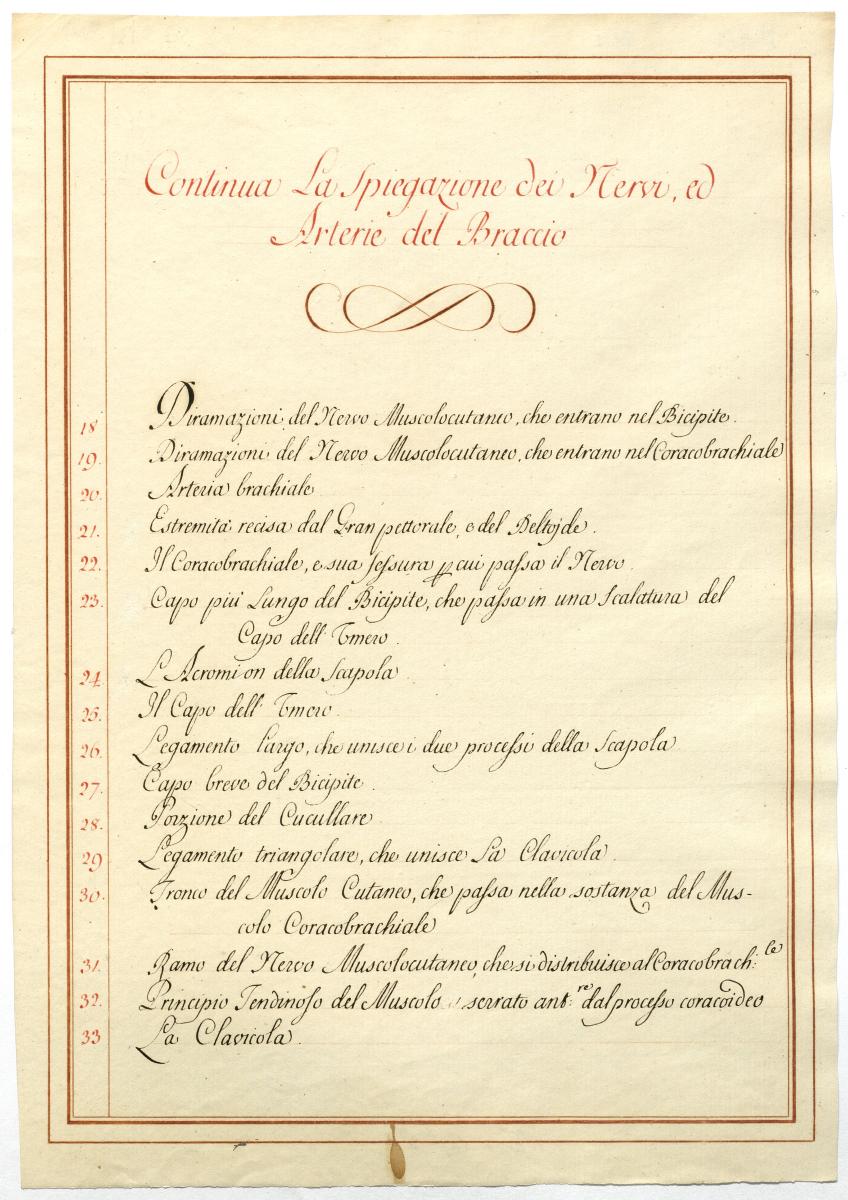 Continua La Spiegazione dei Nervi, ed
Arterie del Braccio
18 Diramazioni del Nervo Muscolocutaneo, che entrano nel Bicipite.
19. Diramazioni del Nervo Muscolocutaneo, che entrano nel Coracobrachiale
20. Arteria brachiale
21. Estremità recisa dal Gran pettorale, e del Deltojde.
22. Il Coracobrachiale, e sua fessura p cui passa il Nervo.
23. Capo piú Lungo del Bicipite, che passa in una Scalatura del
Capo dell' Umero.
24. L'Acromion della Scapola.
25. Il Capo dell' Umero.
26. Legamento largo, che unisce i due processi della Scapola
27. Capo breve del Bicipite.
28. Porzione del Cucullare
29 Legamento triangolare, che unisce La Clavicola.
30. Tronco del Muscolo Cutaneo, che passa nella sostanza del Mus-
colo Coracobrachiale
31. Ramo del Nervo Muscolocutaneo, che si distribuisce al Coracobrach:le
32. Principio Tendinoso del Muscolo serrato ant:re dal processo coracoideo
33 La Clavicola.